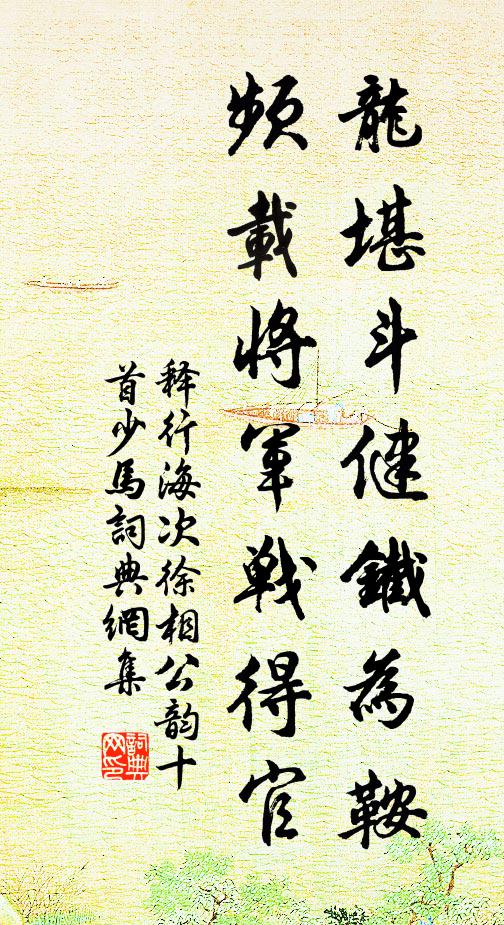 龍堪斗健鐵為鞍
頻載將軍戰得官
释行海次徐相公韵十
首少馬詞典網集
詞典
网印